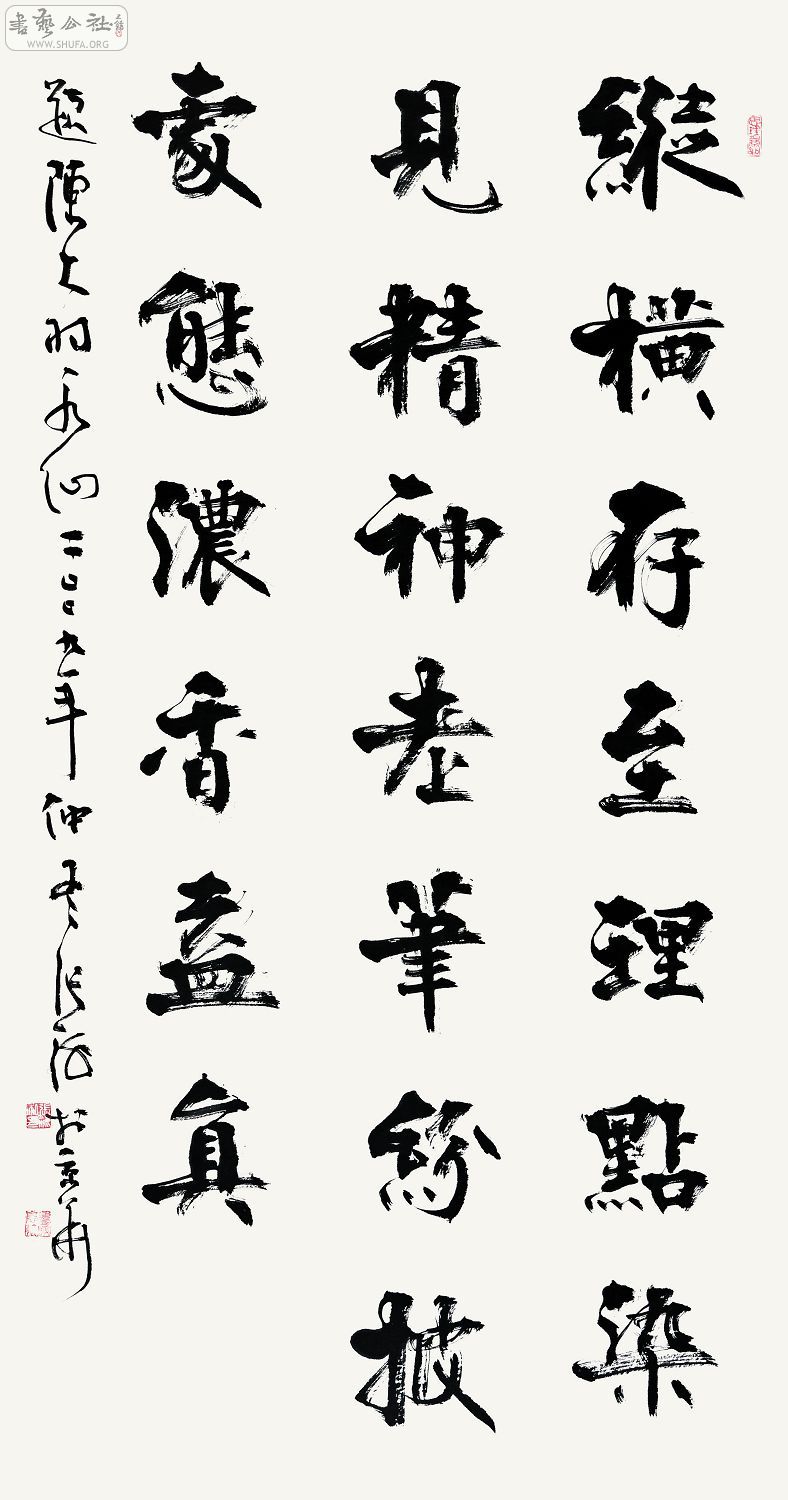 書藝公社
WWW.SHUFA.ORG
縱橫存至理點染
見精神老筆紛披
處態濃香益真
題陳大羽水仙二〇〇九年仲冬張於京華